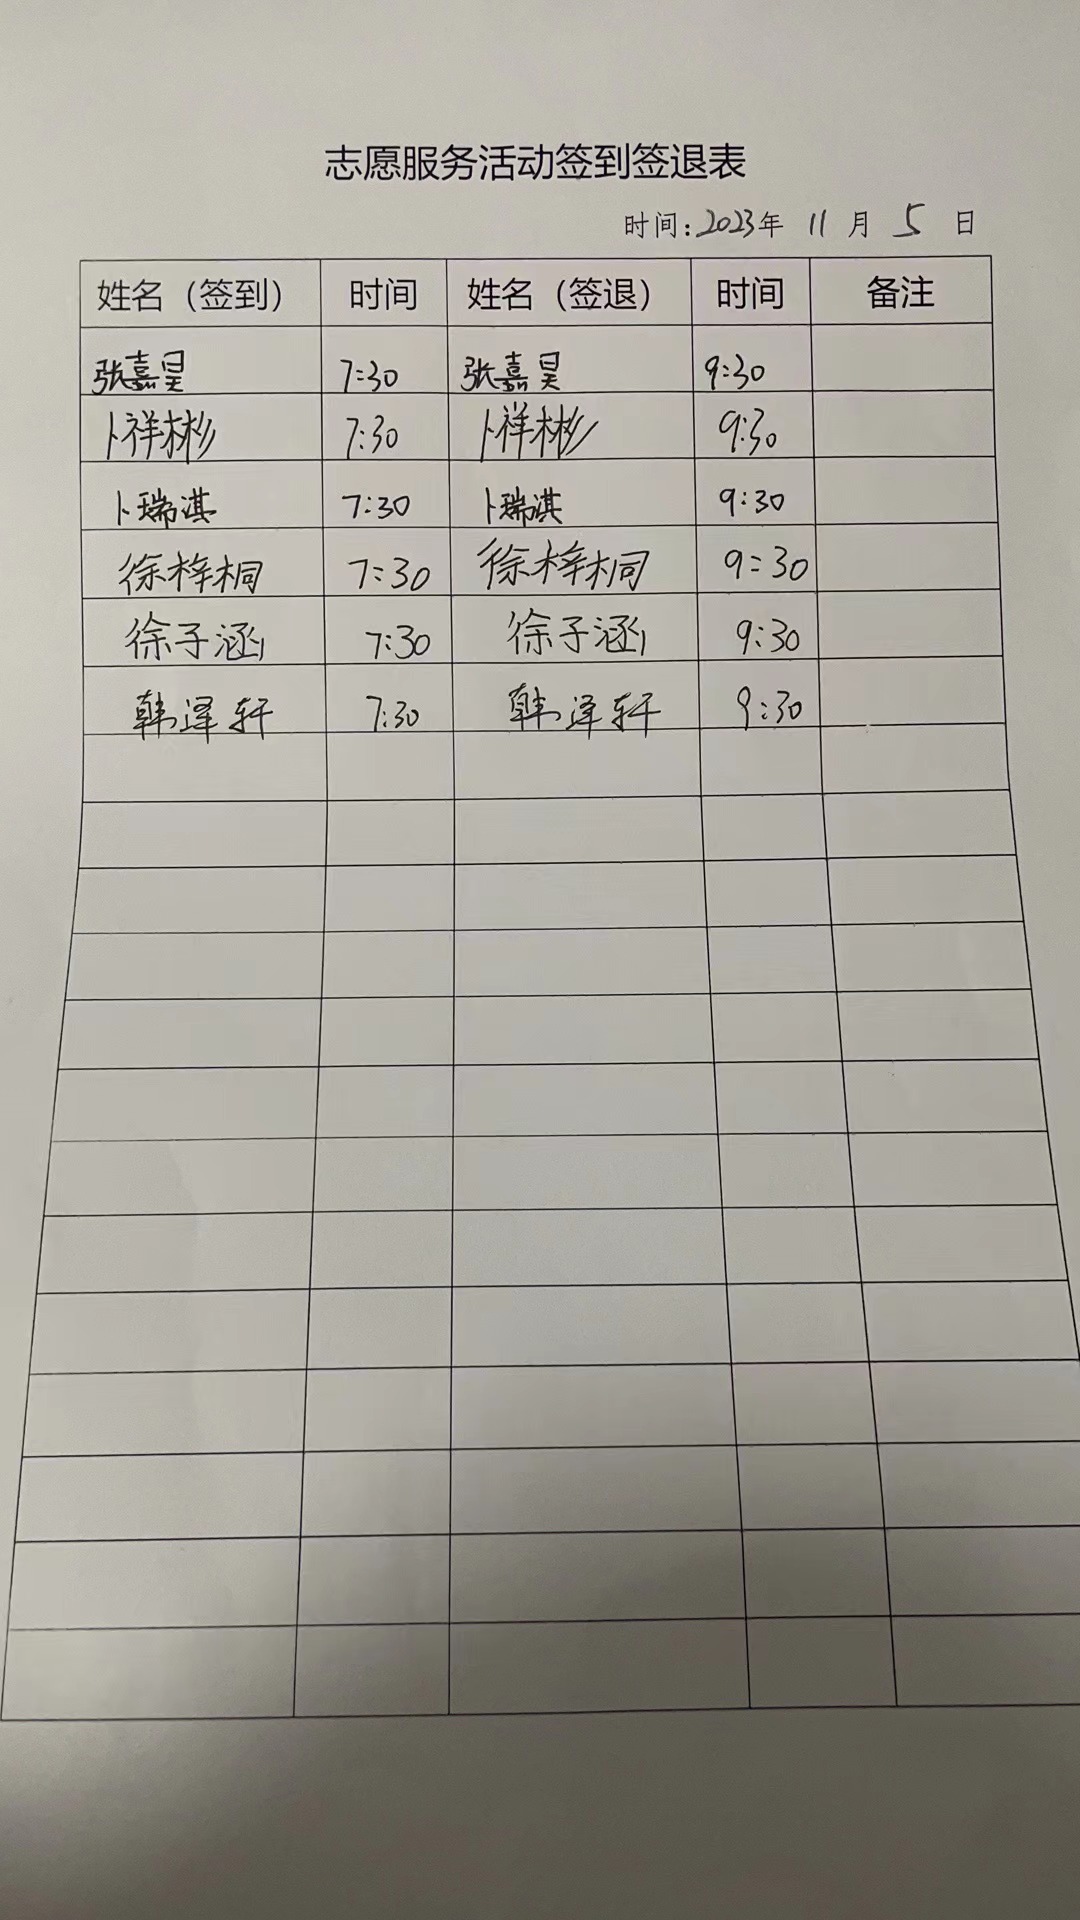 志愿服务活动签到签退表
时间:2023年 11 月 5 日
姓名（签到） 时间 姓名（签退） 时间 备注
张嘉昊 7:30 张嘉昊 9:30
卜祥彬 7:30 卜祥彬 9:30
卜瑞淇 7:30 卜瑞淇 9:30
徐梓桐 7:30 徐梓桐 9:30
徐子涵 7:30 徐子涵 9:30
韩泽轩 7:30 韩泽轩 9:30